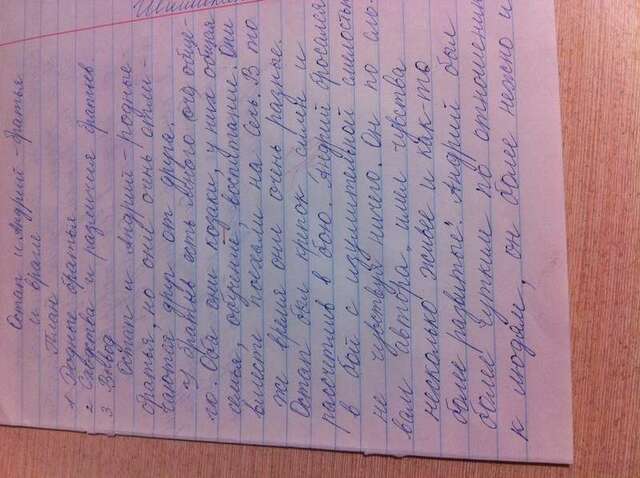 Остап и Андрий - братья
и враги
План
1 Родные братья
2 Сходства и различия братьев
3 Вывод
Остап и Андрий - родные
братья, но они очень отли-
чаются друг от друга.
У братьев есть много чего обще-
го. Оба они козаки, у них общая
семья, обучение, воспитание. Они
вместе поехали на Сечь. В то
же время они очень разные.
Остап был крепок силен и
рассчетлив в бою. Андрий бросался
в бой с изумительной смелостью
не чувствуя ничего. Он по сло-
вам автора, имел чувства
несколько живее и как-то
более развитые. Андрий был
более чутким по отношению
к людям, он более нежно и